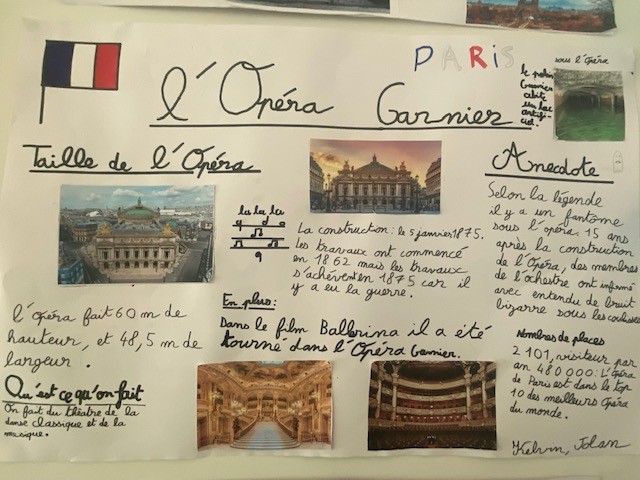 PARIS
L'Opéra Garnier
sous l'Opéra
le palais
Garnier
abite
un lac
artifi-
ciel.
Taille de l'Opéra
l'opéra fait 60 m de
hauteur, et 48,5 m de
largeur.
Qu'est ce qu'on fait
On fait du théâtre de la
danse classique et de la
musique.
la la la
La construction : le 5 janvier 1875.
Les travaux ont commencé
en 1862 mais les travaux
s'achèvent en 1875 car il
y a eu la guerre.
En plus :
Dans le film Ballerina il a été
tourné dans l'Opéra Garnier.
Anecdote
Selon la légende
il y a un fantome
sous l'opéra. 15 ans
après la construction
de l'Opéra, des membres
de l'ochestre ont informé
avec entendu de bruit
bizarre sous les coulisses
Nombres de places
2 101, visiteur par
an 480 000 : L'Opéra
de Paris est dans le top
10 des meilleurs Opéra
du monde.
Kelvin, Jolan